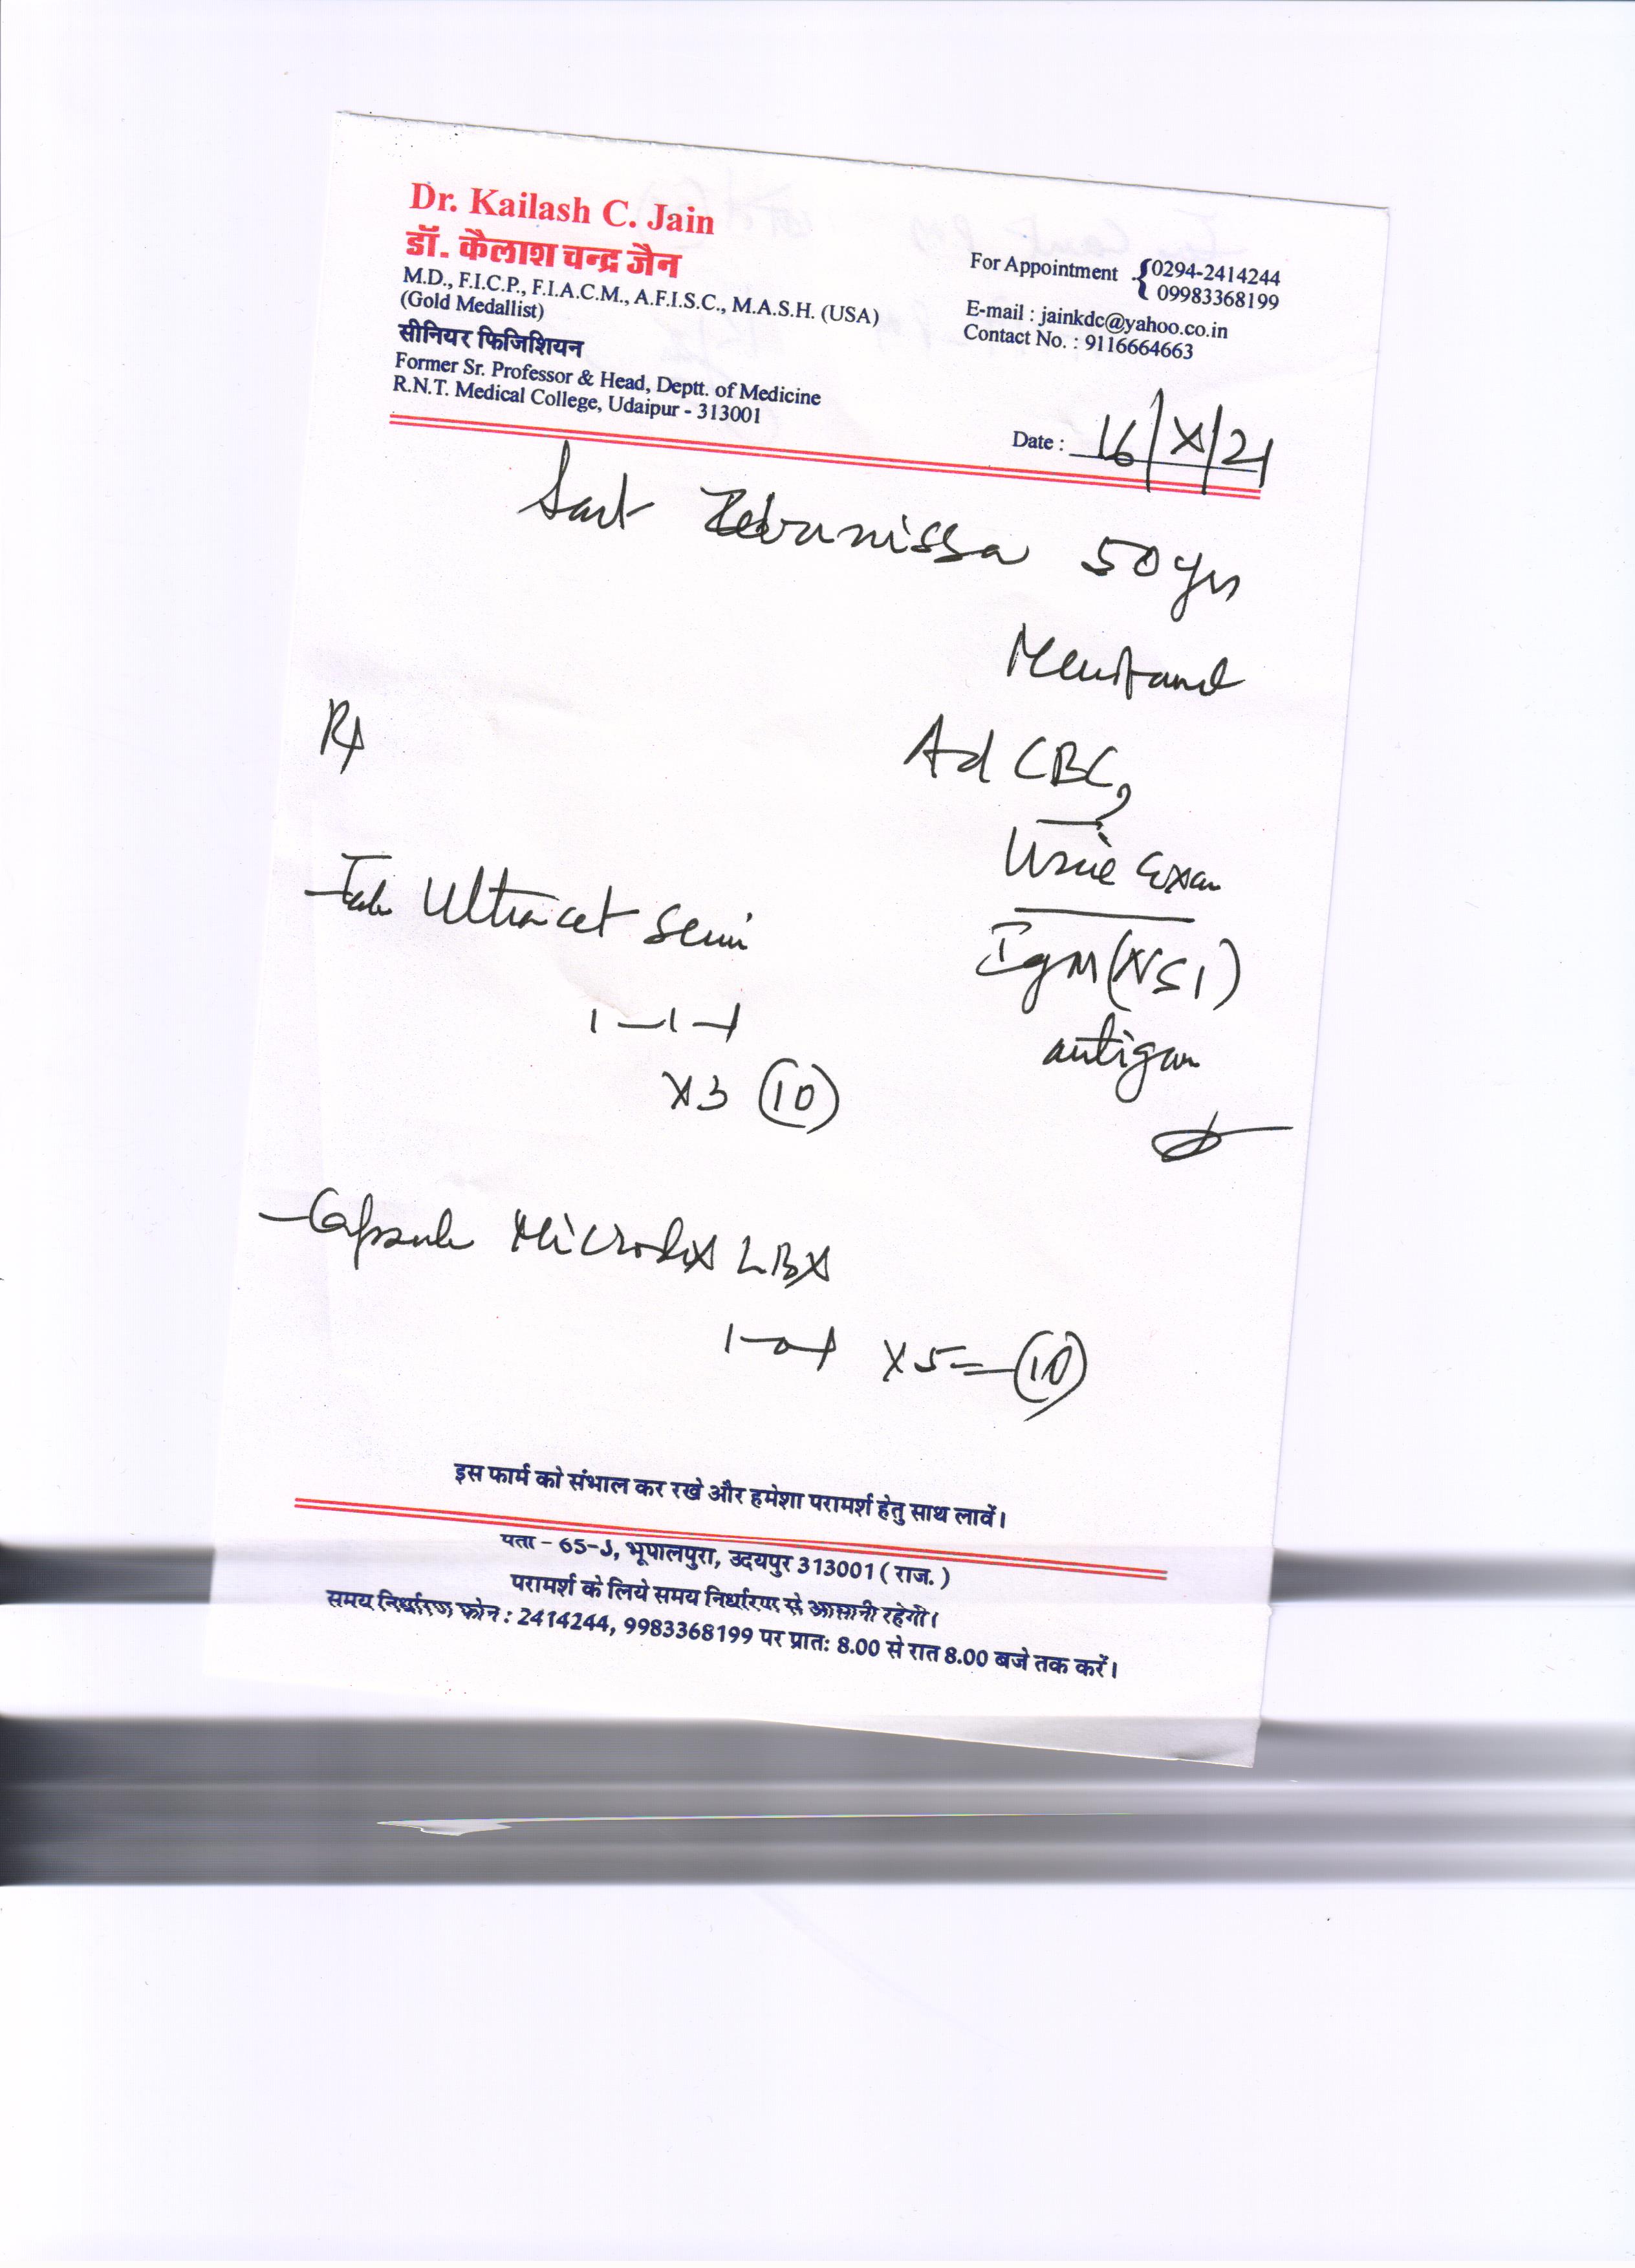 Dr. Kailash C. Jain
डॉ. कैलाश चन्द्र जैन
M.D., F.I.C.P., F.I.A.C.M., A.F.I.S.C., M.A.S.H. (USA)
(Gold Medallist)
सीनियर फिजिशियन
Former Sr. Professor & Head, Deptt. of Medicine
R.N.T. Medical College, Udaipur - 313001
For Appointment { 0294-2414244
09983368199
E-mail : jainkdc@yahoo.co.in
Contact No. : 9116664663
Date : 16/X/21
Zebunissa 50 yrs
Ad CBC,
Urine Exam
IgM (NS1)
antigen
Rx
Tab Ultracet Semi
1-1-1
x3 (10)
Capsule Microdox LBX
1-0-1 x5= (10)
इस फार्म को संभाल कर रखे और हमेशा परामर्श हेतु साथ लावें।
पता - 65-J, भूपालपुरा, उदयपुर 313001 ( राज. )
परामर्श के लिये समय निर्धारण से आसानी रहेगी।
समय निर्धारण फोन : 2414244, 9983368199 पर प्रात: 8.00 से रात 8.00 बजे तक करें।